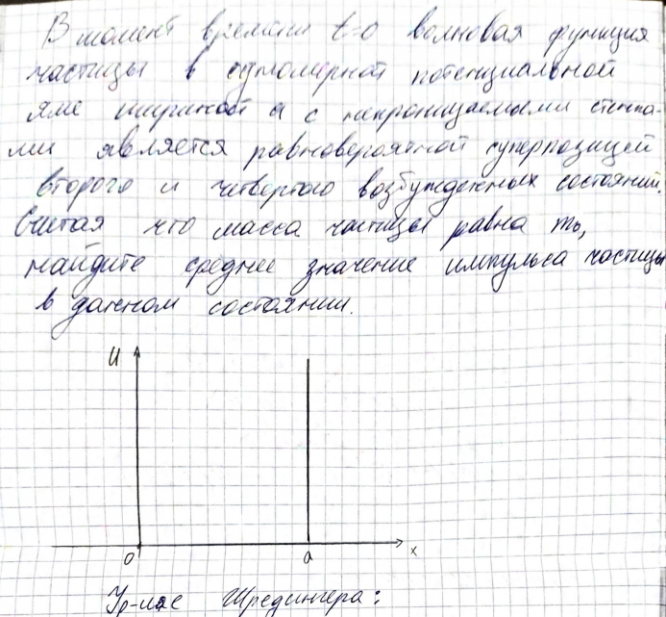 В момент времени t=0 волновая функция
частицы в одномерной потенциальной
яме шириной a с непроницаемыми стенка-
ми является равновероятной суперпозицией
второго и четвертого возбужденных состояний.
Считая что масса частицы равна m₀,
найдите среднее значение импульса частицы
в данном состоянии.
U
0 a x
Ур-ние Шредингера: